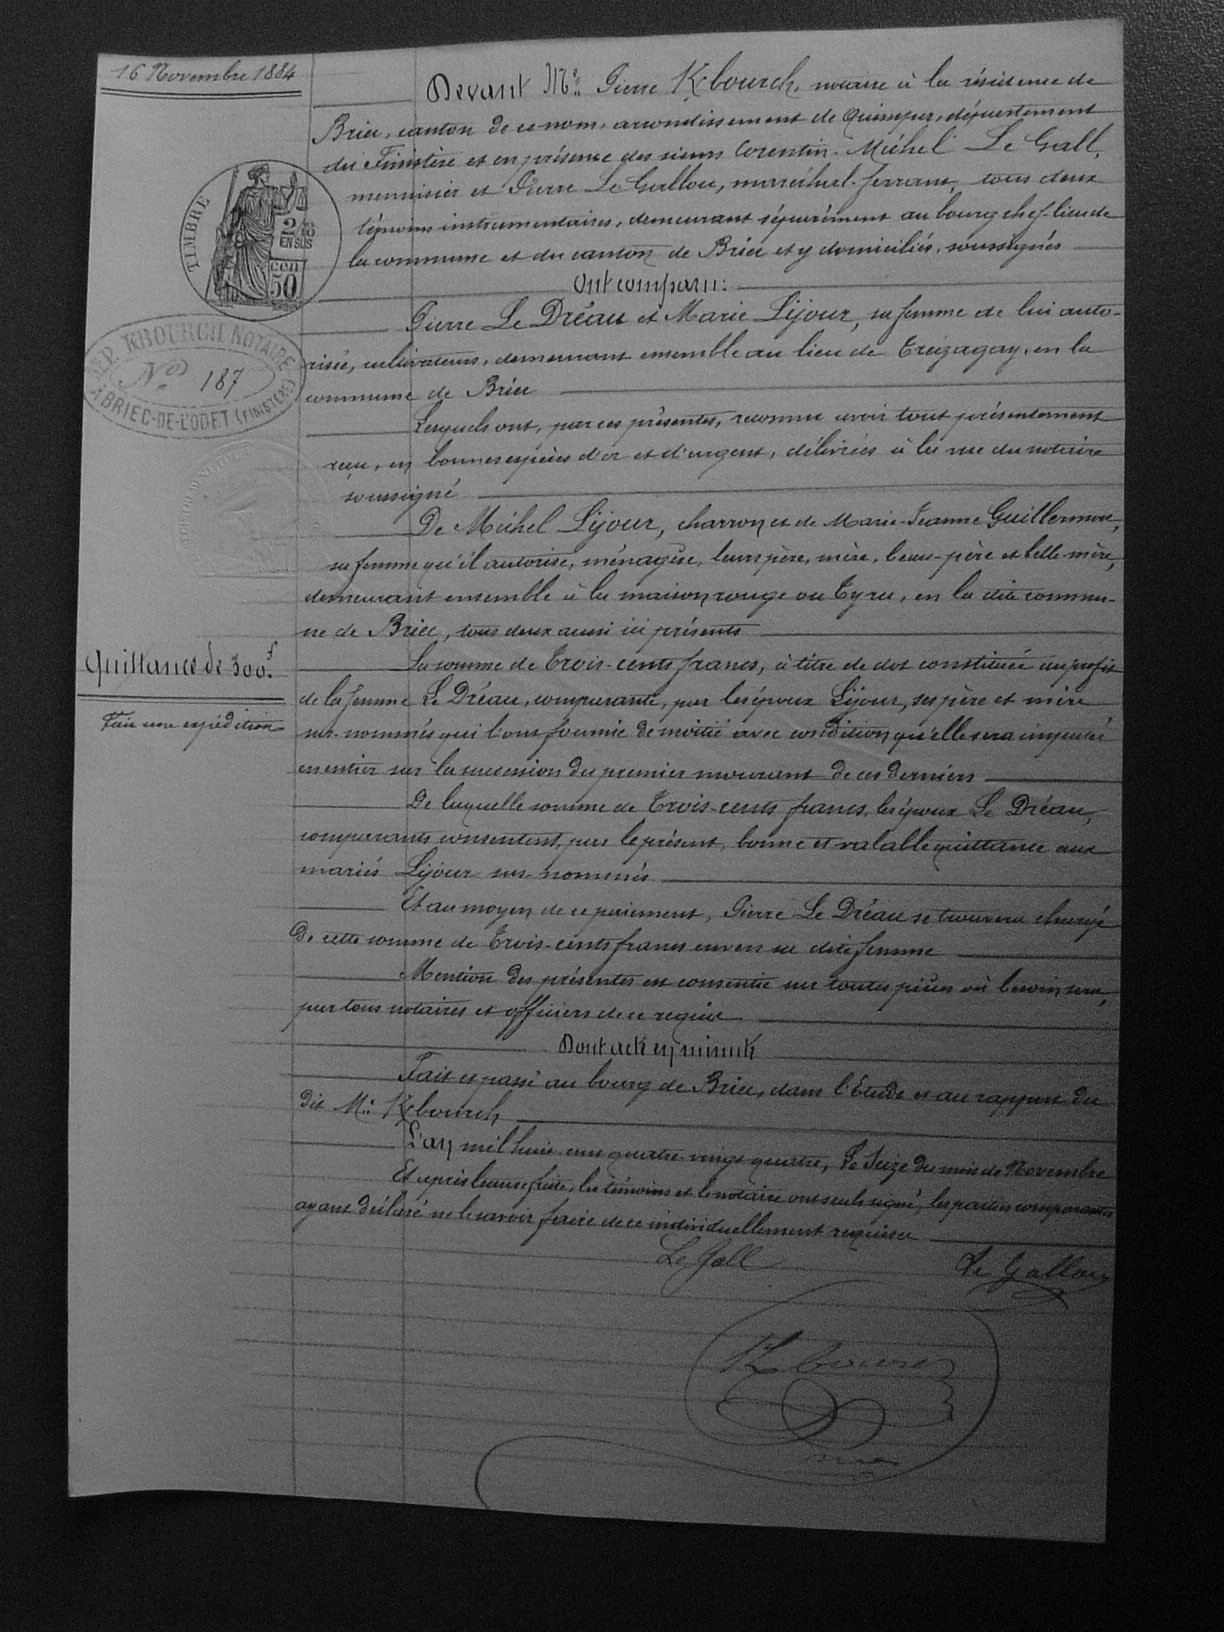 16 Novembre 1884
Devant Me. Pierre Kbourch, notaire à la résidence de
Briec, canton de ce nom, arrondissement de Quimper, département
du Finistère et en présence des sieurs Corentin-Michel Le Gall,
menuisier et Pierre Le Gallou, maréchal-ferrant, tous deux
témoins instrumentaires, demeurant séparément au bourg chef-lieu de
la commune et du canton de Briec et y domiciliés, soussignés
TIMBRE
2/10
EN SUS
50 cen
Ont comparu:
Pierre Le Dréau et Marie Lijour, sa femme de lui auto-
risée, cultivateurs, demeurant ensemble au lieu de Treizagay, en la
commune de Briec
P. KBOURCH NOTAIRE
No 187
A BRIEC-DE-L'ODET (FINISTÈRE)
Lesquels ont, par ces présentes, reconnu avoir tout présentement
reçu, en bonnes espèces d'or et d'argent, délivrées à la vue du notaire
soussigné
De Michel Lijour, charron et de Marie-Jeanne Guillermou,
sa femme qu'il autorise, ménagère, leurs père, mère, beau-père et belle-mère,
demeurant ensemble à la maison rouge ou Tyru, en la dite commu-
ne de Briec, tous deux aussi ici présents
Quittance de 300f.
La somme de Trois-cents francs, à titre de dot constituée au profit
de la femme Le Dréau, comparante, par les époux Lijour, ses père et mère
sus-nommés qui l'ont fournie de moitié avec condition qu'elle sera imputée
en entier sur la succession du premier mourant de ces derniers
Fait une expédition
De laquelle somme de Trois-cents francs, les époux Le Dréau,
comparants consentent, par le présent, bonne et valable quittance aux
mariés Lijour sus-nommés
Et au moyen de ce paiement, Pierre Le Dréau se trouvera chargé
de cette somme de Trois-cents francs envers sa dite femme
Mention des présentes est consentie sur toutes pièces où besoin sera,
par tous notaires et officiers de ce requis
Dont acte en minute
Fait et passé au bourg de Briec, dans l'Etude et au rapport du
dit Me. Kbourch
L'an mil huit cent quatre-vingt-quatre, Le Seize du mois de Novembre
Et après lecture faite, les témoins et le notaire ont seuls signé, les parties comparantes
ayant déclaré ne le savoir faire de ce individuellement requises
Le Gall
Le Gallou
Kbourch